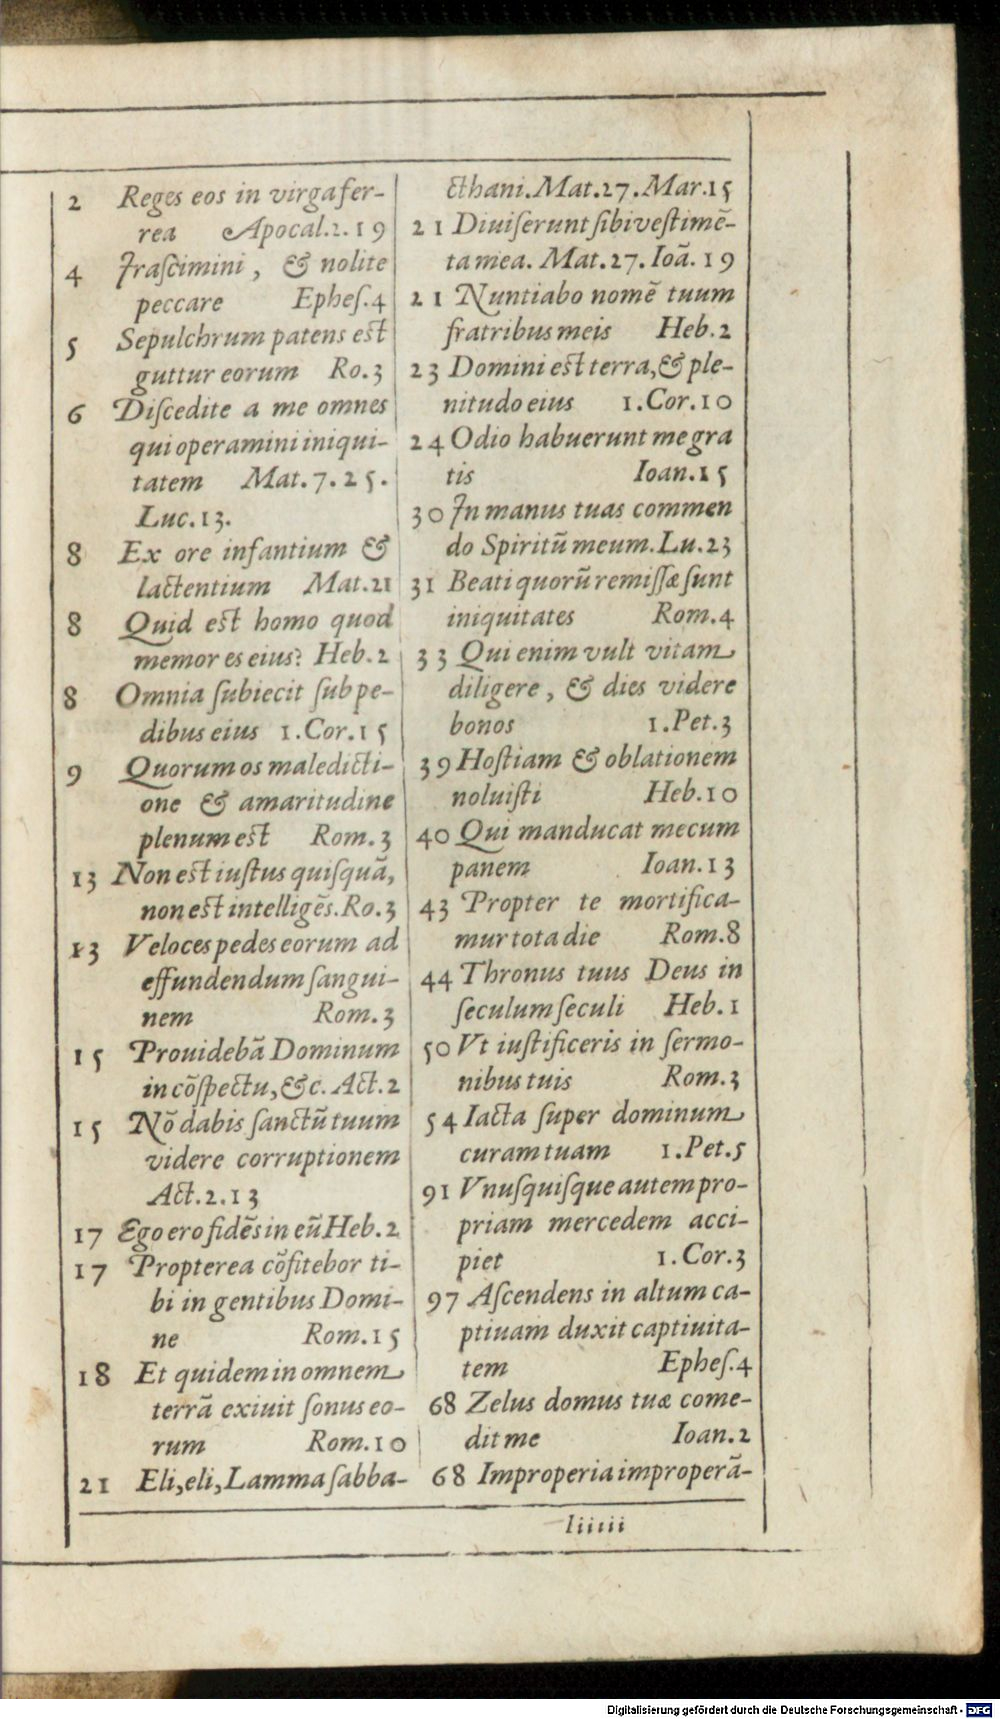 2 Reges eos in virga fer-
rea Apocal.2.19
4 Iraſcimini, & nolite
peccare Epheſ.4
5 Sepulchrum patens eſt
guttur eorum Ro.3
6 Diſcedite a me omnes
qui operamini iniqui-
tatem Mat.7.25.
Luc.13.
8 Ex ore infantium &
lactentium Mat.21
8 Quid eſt homo quod
memor es eius? Heb.2
8 Omnia ſubiecit ſub pe-
dibus eius 1.Cor.15
9 Quorum os maledicti-
one & amaritudine
plenum eſt Rom.3
13 Non eſt iuſtus quiſquā,
non eſt intelligēs.Ro.3
13 Veloces pedes eorum ad
effundendum ſangui-
nem Rom.3
15 Prouidebā Dominum
in cōſpectu,&c. Act.2
15 Nō dabis ſanctū tuum
videre corruptionem
Act.2.13
17 Ego ero fidēs in eū Heb.2
17 Propterea cōfitebor ti-
bi in gentibus Domi-
ne Rom.15
18 Et quidem in omnem
terrā exiuit ſonus eo-
rum Rom.10
21 Eli,eli,Lamma ſabba-
cthani.Mat.27.Mar.15
21 Diuiſerunt ſibi veſtimē-
ta mea. Mat.27.Ioā.19
21 Nuntiabo nomē tuum
fratribus meis Heb.2
23 Domini eſt terra,& ple-
nitudo eius 1.Cor.10
24 Odio habuerunt me gra
tis Ioan.15
30 In manus tuas commen
do Spiritū meum.Lu.23
31 Beati quorū remiſſæ ſunt
iniquitates Rom.4
33 Qui enim vult vitam
diligere, & dies videre
bonos 1.Pet.3
39 Hoſtiam & oblationem
noluiſti Heb.10
40 Qui manducat mecum
panem Ioan.13
43 Propter te mortifica-
mur tota die Rom.8
44 Thronus tuus Deus in
ſeculum ſeculi Heb.1
50 Vt iuſtificeris in ſermo-
nibus tuis Rom.3
54 Iacta ſuper dominum
curam tuam 1.Pet.5
91 Vnuſquiſque autem pro-
priam mercedem acci-
piet 1.Cor.3
97 Aſcendens in altum ca-
ptiuam duxit captiuita-
tem Epheſ.4
68 Zelus domus tuæ come-
dit me Ioan.2
68 Improperia improperā-
liiiii
Digitalisierung gefördert durch die Deutsche Forschungsgemeinschaft - DFG